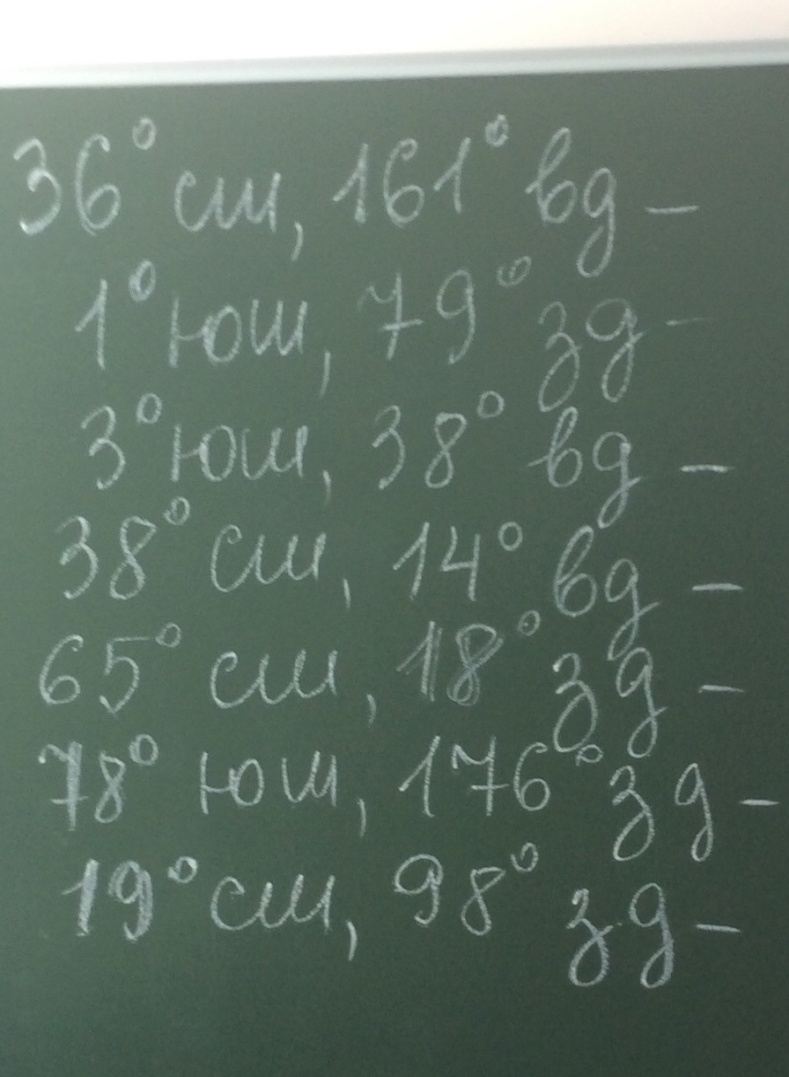 36° сш, 161° вд –
1° юш, 79° зд –
3° юш, 38° вд –
38° сш, 14° вд –
65° сш, 18° зд –
78° юш, 176° зд –
19° сш, 98° зд –